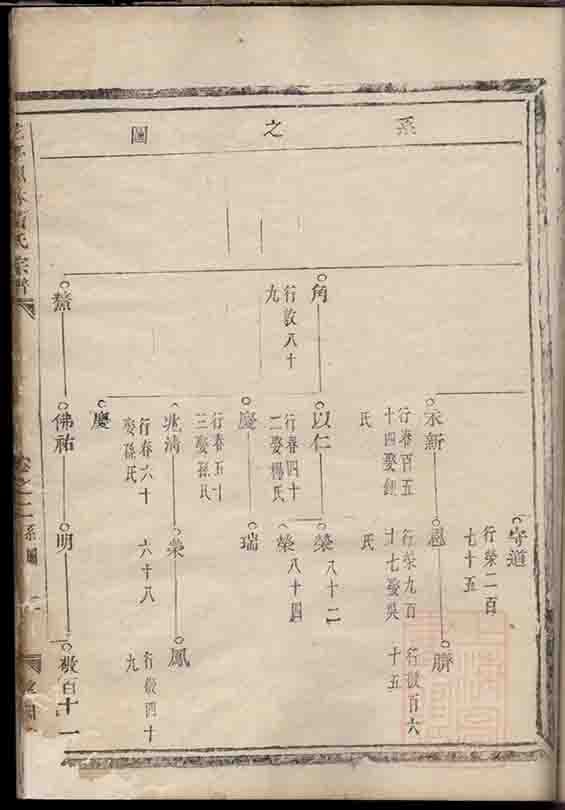 系之圖
守道
行榮二百
七十五
永新
行春百五
十四娶鍾
氏
恩
行榮九百
十七娶吳
氏
臍
行敬百六
十五
角
行敬八十
九
以仁
行春四十
二娶楊氏
榮
八十二
榮
八十四
慶
行春五十
三娶孫氏
瑞
兆清
行春六十
娶孫氏
榮
六十八
鳳
行敬四十
九
慶
佛祐
明
敬百十一
氏宗譜
卷之二
系圖